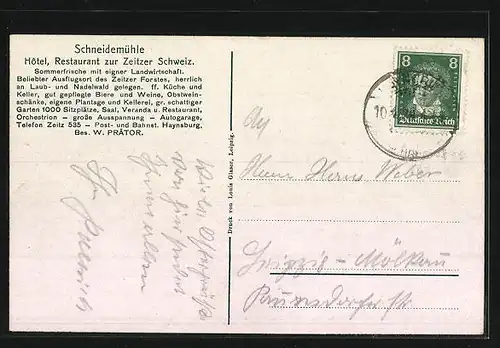 Schneidemühle
Hôtel, Restaurant zur Zeitzer Schweiz.
Sommerfrische mit eigner Landwirtschaft.
Beliebter Ausflugsort des Zeitzer Forstes, herrlich
an Laub- und Nadelwald gelegen. ff. Küche und
Keller, gut gepflegte Biere und Weine, Obstwein-
schänke, eigene Plantage und Kellerei, gr. schattiger
Garten 1000 Sitzplätze, Saal, Veranda u. Restaurant,
Orchestrion - große Ausspannung - Autogarage,
Telefon Zeitz 535 - Post- und Bahnst. Haynsburg,
Bes. W. PRÄTOR.
Viele
Druck von Louis Glaser, Leipzig.
8 8
Deutsches Reich
10
An
Herrn Hans Weber
Leipzig-Mölkau